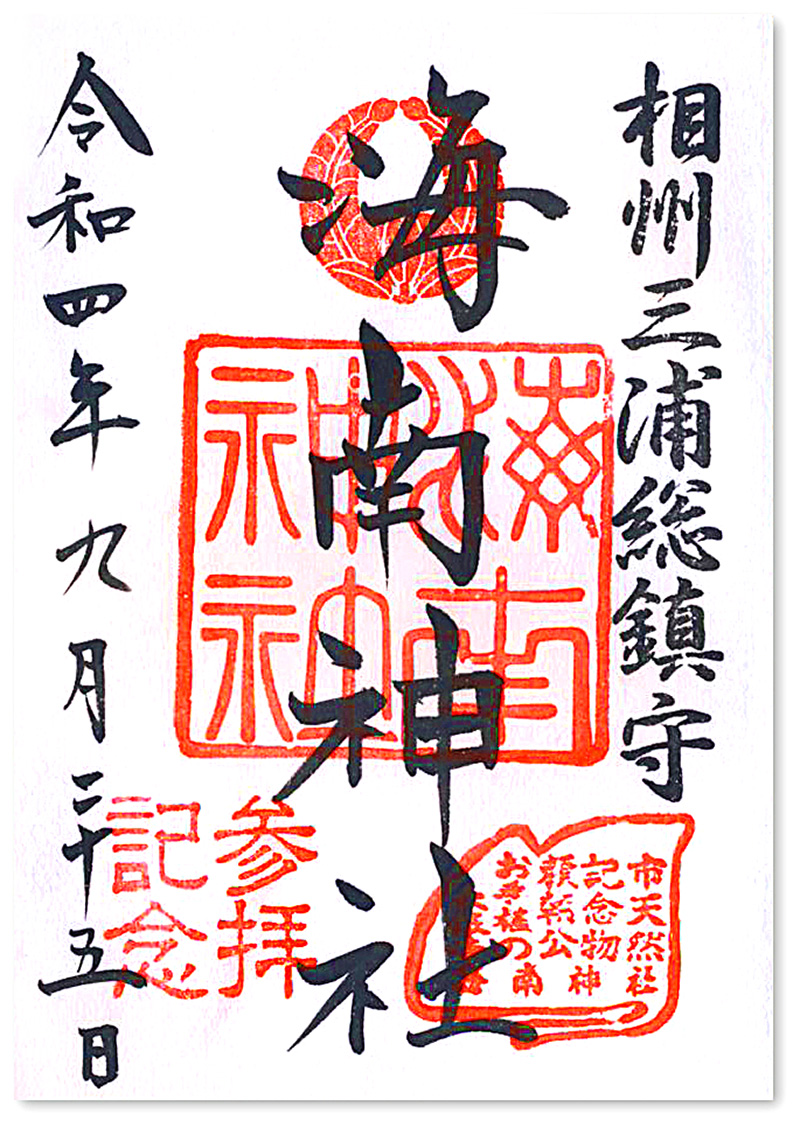 相州三浦総鎮守
海南神社
令和四年九月二十五日
海南
神社
参拝
記念
市天然
記念物
頼朝公
お手植の